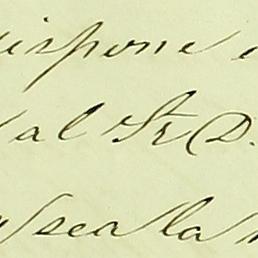 dispone
al Sr D.
sea la